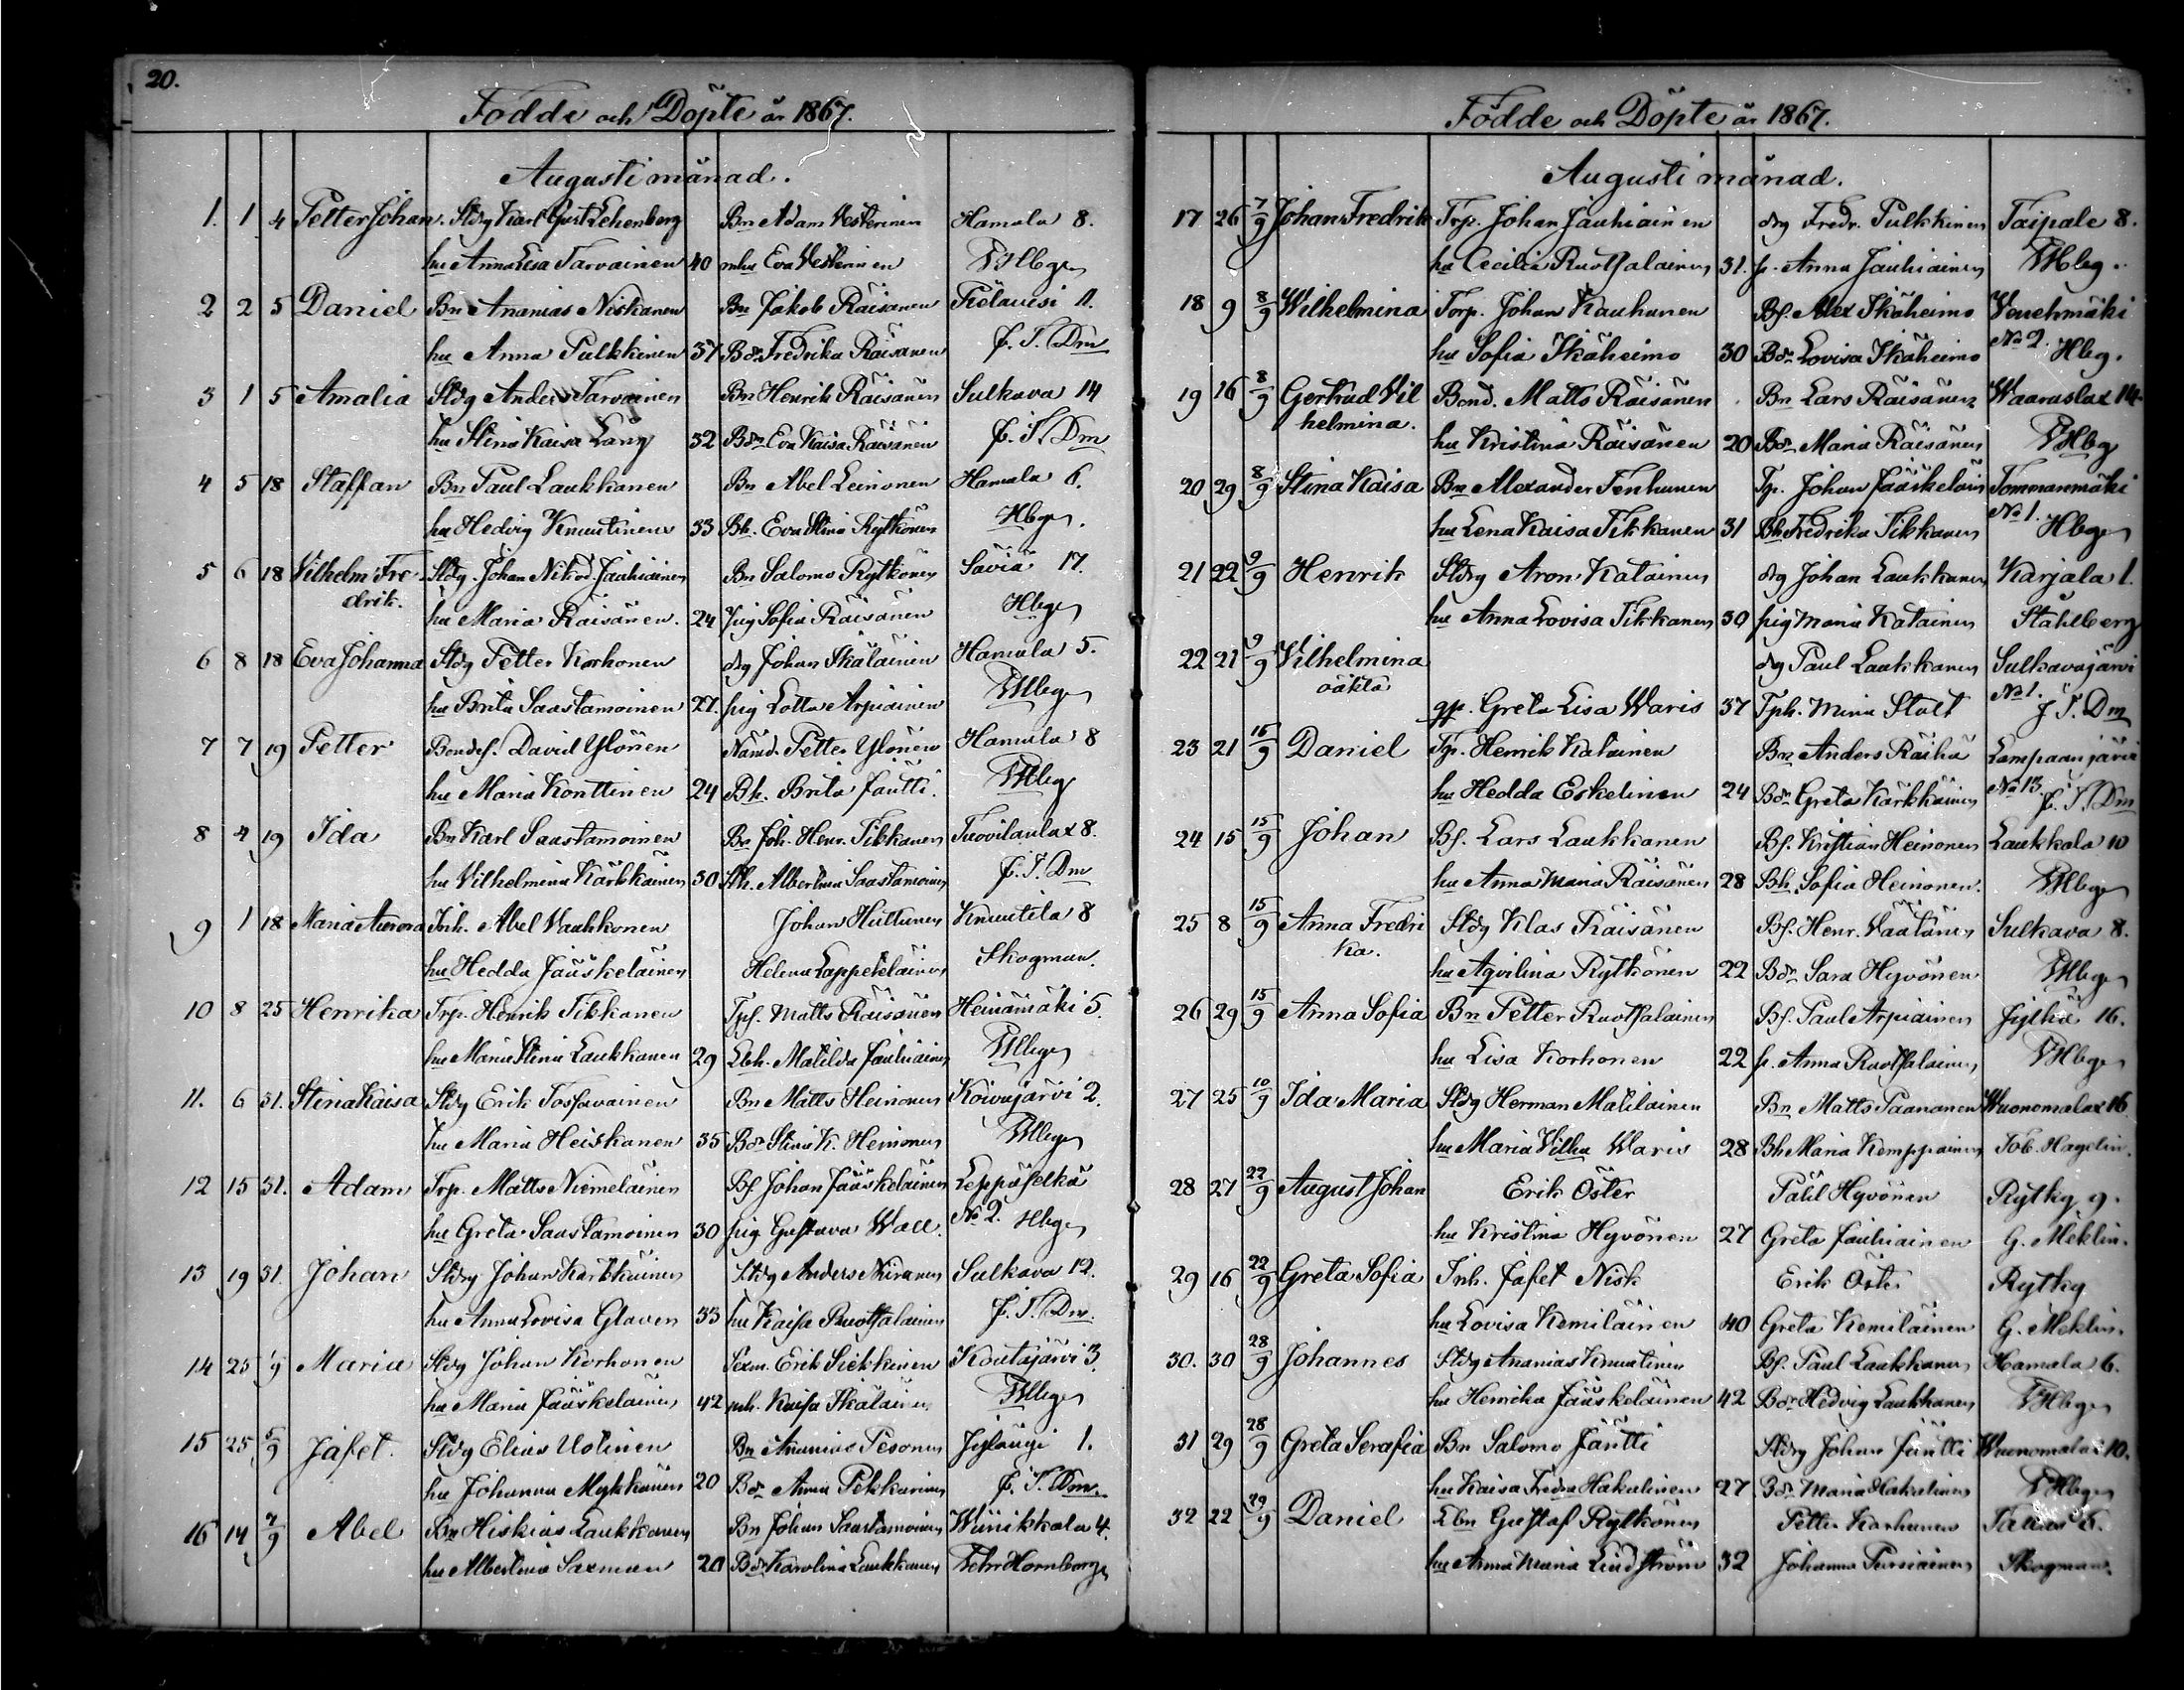 20.
Födde och Döpte år 1867.
Augusti månad.
1. 1 4 Petter Johan. Stdrg Karl Gust Lehenberg Bn Adam Vesterinen Hamula 8.
hu Anna Lisa Tarvainen 40 mhu Eva Vesterinen VHbg
2 2 5 Daniel Bn Ananias Niskanen Bn Jakob Räisänen Kelauesi 11.
hu Anna Pulkkinen 37 Bdr Fredrika Räisänen J. T. Dm
3 1 5 Amalia Stdg Anders Tarvainen Bn Henrik Räisänen Sulkava 14
hu Stina Kaisa Lang 32 Bdr Eva Kaisa Räisänen J. T. Dm
4 5 18 Staffan Bn Paul Laukkanen Bn Abel Leinonen Hamula 6.
hu Hedvig Knuutinen 33 Bh. Eva Stina Rytkönen Hbg.
5 6 18 Vilhelm Fre- Stdg. Johan Nikod. Jauhiainen Bn Salomo Rytkönen Saviä 17.
drik.
hu Maria Räisänen. 24 pig Sofia Räisänen Hbg
6 8 18 Eva Johanna Stdg Petter Korhonen drg Johan Ikäläinen Hamula 5.
hu Brita Saastamoinen 27. pig Lotta Arpiainen VHbg
7 7 19 Petter Bondes. David Ylönen Nämd. Petter Ylönen Hamula 8
hu Maria Konttinen 24 Bh. Brita Jäntti. VHbg
8 4 19 Ida Bn Karl Saastamoinen Bn Joh. Henr. Tikkanen Tuovilanlax 8.
hu Vilhelmina Kärkkäinen 30 Bh. Albertina Saastamoinen J. T. Dm
9 1 18 Maria Aurora Inh. Abel Vauhkonen Johan Huttunen Knuutila 8
hu Hedda Jääskeläinen Helena Lappeteläinen Skogman.
10 8 25 Henrika Trp. Henrik Tikkanen Tpf. Matts Räisänen Heinämäki 5.
hu Maria Stina Laukkanen 29 Lbh. Matilda Jauhiainen VHbg
11. 6 31. Stina Kaisa Stdg Erik Tossavainen Bn Matts Heinonen Koivujärvi 2.
hu Maria Heiskanen 35 Bdr Stina K. Heinonen VHbg
12 15 31. Adam Trp. Matts Niemeläinen Bf Johan Jääskeläinen Leppäselkä
No 2. Hbg
hu Greta Saastamoinen 30 pig Gustava Wall.
13 19 31. Johan Stdrg Johan Kärkkäinen Stdrg Anders Niiranen Sulkava 12.
hu Anna Lovisa Glaven 33 hu Kaisa Ruotsalainen J. T. Dm.
14 25 1/9 Maria Stdg Johan Korhonen Sexm. Erik Siekkinen Koutajärvi 3.
hu Maria Jääskeläinen 42 mh. Kaisa Ikäläinen VHbg
15 25 5/9 Jafet. Stdg Elias Uotinen Bn Ananias Pesonen Jylängi 1.
hu Johanna Mykkänen 20 Bdr Anna Pekkarinen J. T. Dm.
16 14 7/9 Abel Bn Hiskias Laukkanen Bn Johan Saastamoinen Wiinikkala 4.
hu Albertina Saxman 20 Bdr Karolina Laukkanen Vchr Hornborg
Födde och Döpte år 1867.
Augusti månad.
17 26 7/9 Johan Fredrik Trp. Johan Jauhiainen drg Fredr. Pulkkinen Taipale 8.
hu Cecilia Ruotsalainen 31. p. Anna Jauhiainen VHbg.
18 9 8/9 Wilhelmina Torp. Johan Kauhanen Bf. Alex Ikäheimo Venehmäki
No 2. Hbg.
hu Sofia Ikäheimo 30 Bdr Lovisa Ikäheimo
19 16 8/9 Gertrud Vil Bond. Matts Räisänen Bn Lars Räisänen Waaraslax 14.
helmina.
hu Kristina Räisänen 20 Bdr Maria Räisänen VHbg
20 29 8/9 Stina Kaisa Bn Alexander Tenhunen Tp. Johan Jääskeläin Tommanmäki
No 1. Hbg
hu Lena Kaisa Tikkanen 31 Bh Fredrika Tikkanen
21 22 9/9 Henrik Stdrg Aron Katainen drg Johan Laukkanen Karjala 1.
hu Anna Lovisa Tikkanen 30 pig Maria Katainen Ståhlberg
22 21 9/9 Vilhelmina drg Paul Laukkanen Sulkavajärvi
oäkta
No 1. J. T. Dm
qp. Greta Lisa Waris 37 Tph. Mina Stolt
23 21 15/9 Daniel Tp. Henrik Katainen Bn Anders Räihä Lampaanjärvi
No 13 J. T. Dm
hu Hedda Eskelinen 24 Bdr Greta Kärkkäinen
24 15 15/9 Johan Bf. Lars Laukkanen Bf. Kristian Heinonen Laukkala 10
hu Anna Maria Räisänen 28 Bh. Sofia Heinonen. VHbg
25 8 15/9 Anna Fredri Stdg Klas Räisänen Bf. Henr. Väätänen Sulkava 8.
ka.
hu Aqvilina Rytkönen 22 Bdr Sara Hyvönen VHbg
26 29 15/9 Anna Sofia Bn Petter Ruotsalainen Bf. Paul Arpiainen Jylhä 16.
hu Lisa Korhonen 22 p. Anna Ruotsalainen VHbg
27 25 10/9 Ida Maria Stdg Herman Matilainen Bn Matts Paananen Wuonomalax 16
hu Maria Vilha Waris 28 Bh Maria Kemppainen Tob. Hagelin.
28 27 22/9 August Johan Erik Öster Påhl Hyvönen Rytky 9.
hu Kristina Hyvönen 27 Greta Jauhiainen G. Meklin.
29 16 22/9 Greta Sofia Inh. Jafet Nisk Erik Öster Rytky
hu Lovisa Kemiläinen 40 Greta Kemiläinen G. Meklin.
30. 30 28/9 Johannes Stdg Ananias Knuutinen Bf. Paul Laukkanen Hamula 6.
hu Henrika Jääskeläinen 42 Bdr Hedvig Laukkanen VHbg
31 29 28/9 Greta Serafia Bn Salomo Jäntti Stdrg Johan Jäntti Wuonomalax 10.
hu Kaisa Fredrika Hakulinen 27. Bdr Maria Hakulinen VHbg
32 22 29/9 Daniel Lbn Gustaf Rytkönen Petter Karhunen
hu Anna Maria Lindström 32 Johanna Pursiainen Skogman.